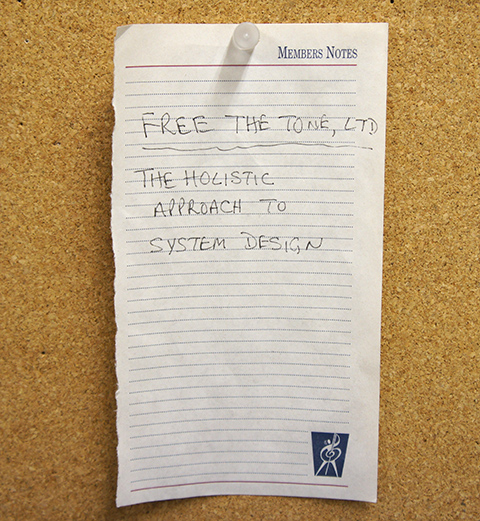 MEMBERS NOTES
FREE THE TONE, LTD
THE HOLISTIC
APPROACH TO
SYSTEM DESIGN